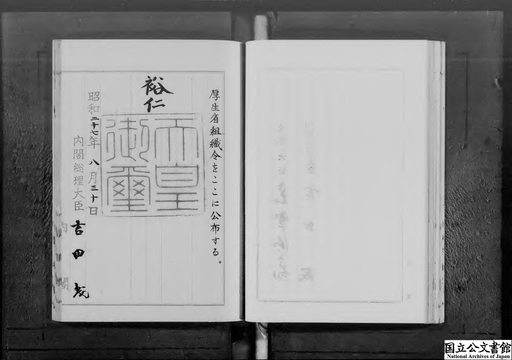 厚生省組織令をここに公布する。
裕仁
天皇御璽
昭和二十七年八月三十日
内閣総理大臣 吉田茂
内閣
国立公文書館
National Archives of Japan